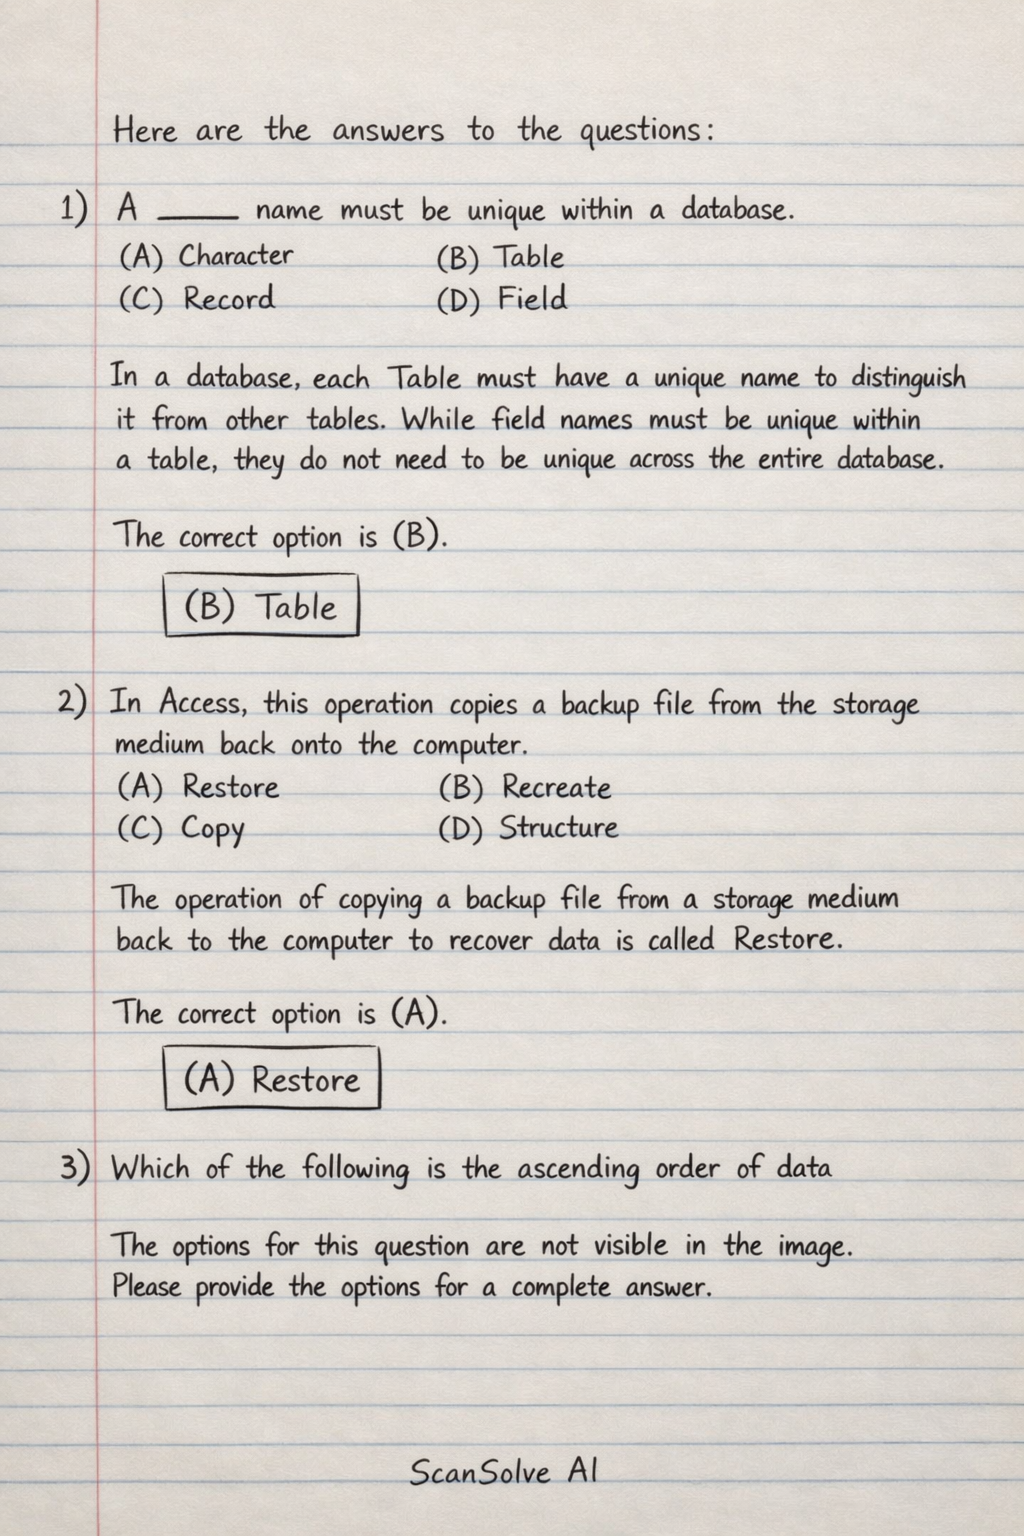 Here are the answers to the questions:
1) A _____ name must be unique within a database.
(A) Character (B) Table
(C) Record (D) Field
In a database, each Table must have a unique name to distinguish
it from other tables. While field names must be unique within
a table, they do not need to be unique across the entire database.
The correct option is (B).
(B) Table
2) In Access, this operation copies a backup file from the storage
medium back onto the computer.
(A) Restore (B) Recreate
(C) Copy (D) Structure
The operation of copying a backup file from a storage medium
back to the computer to recover data is called Restore.
The correct option is (A).
(A) Restore
3) Which of the following is the ascending order of data
The options for this question are not visible in the image.
Please provide the options for a complete answer.
ScanSolve AI